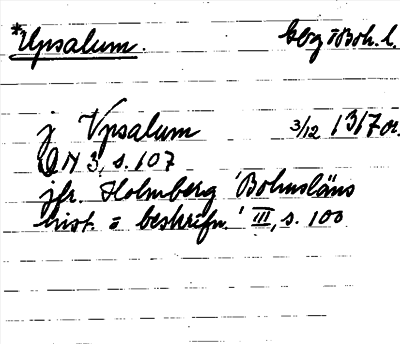 *Upsalum. Gbg o Boh. l.
j Vpsalum 3/12 1317 or.
DN 3, s. 107
jfr. Holmberg 'Bohusläns
hist. o beskrifn.' III, s. 100